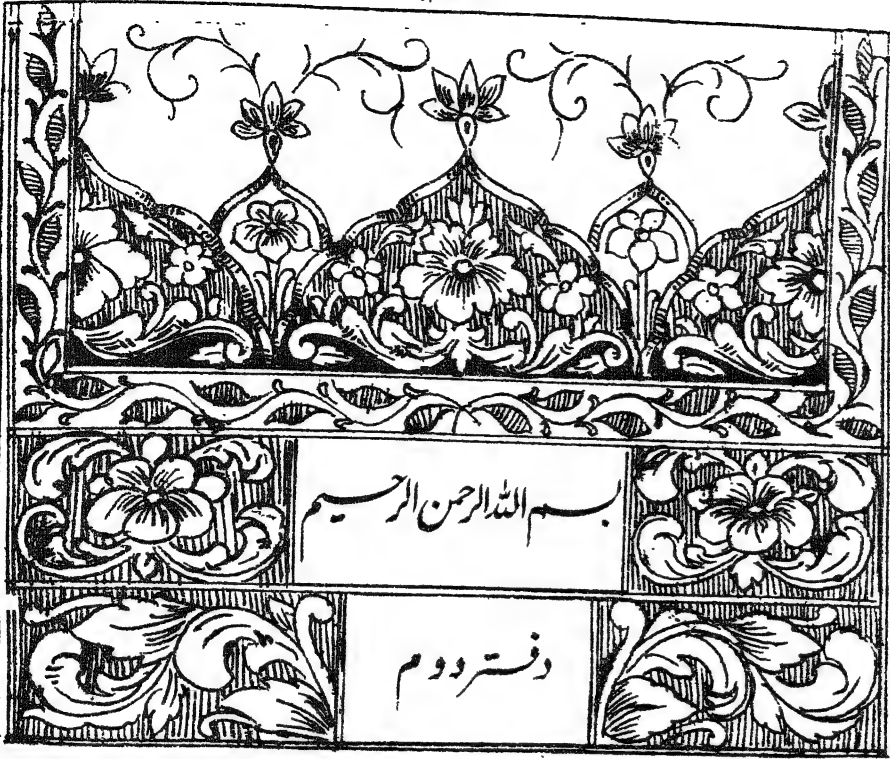 بسم الله الرحمن الرحیم
دفتر دوم